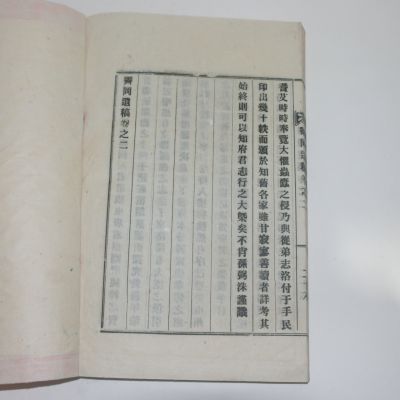 書及時時奉覽大懼蟲蠹之侵乃與從弟志洛付于手民
印出幾十帙而頒於知舊各家雖甘寂寞善讀者詳考其
始終則可以知府君志行之大槩矣不肖孫弼洙謹識
霽岡遺稿卷之二